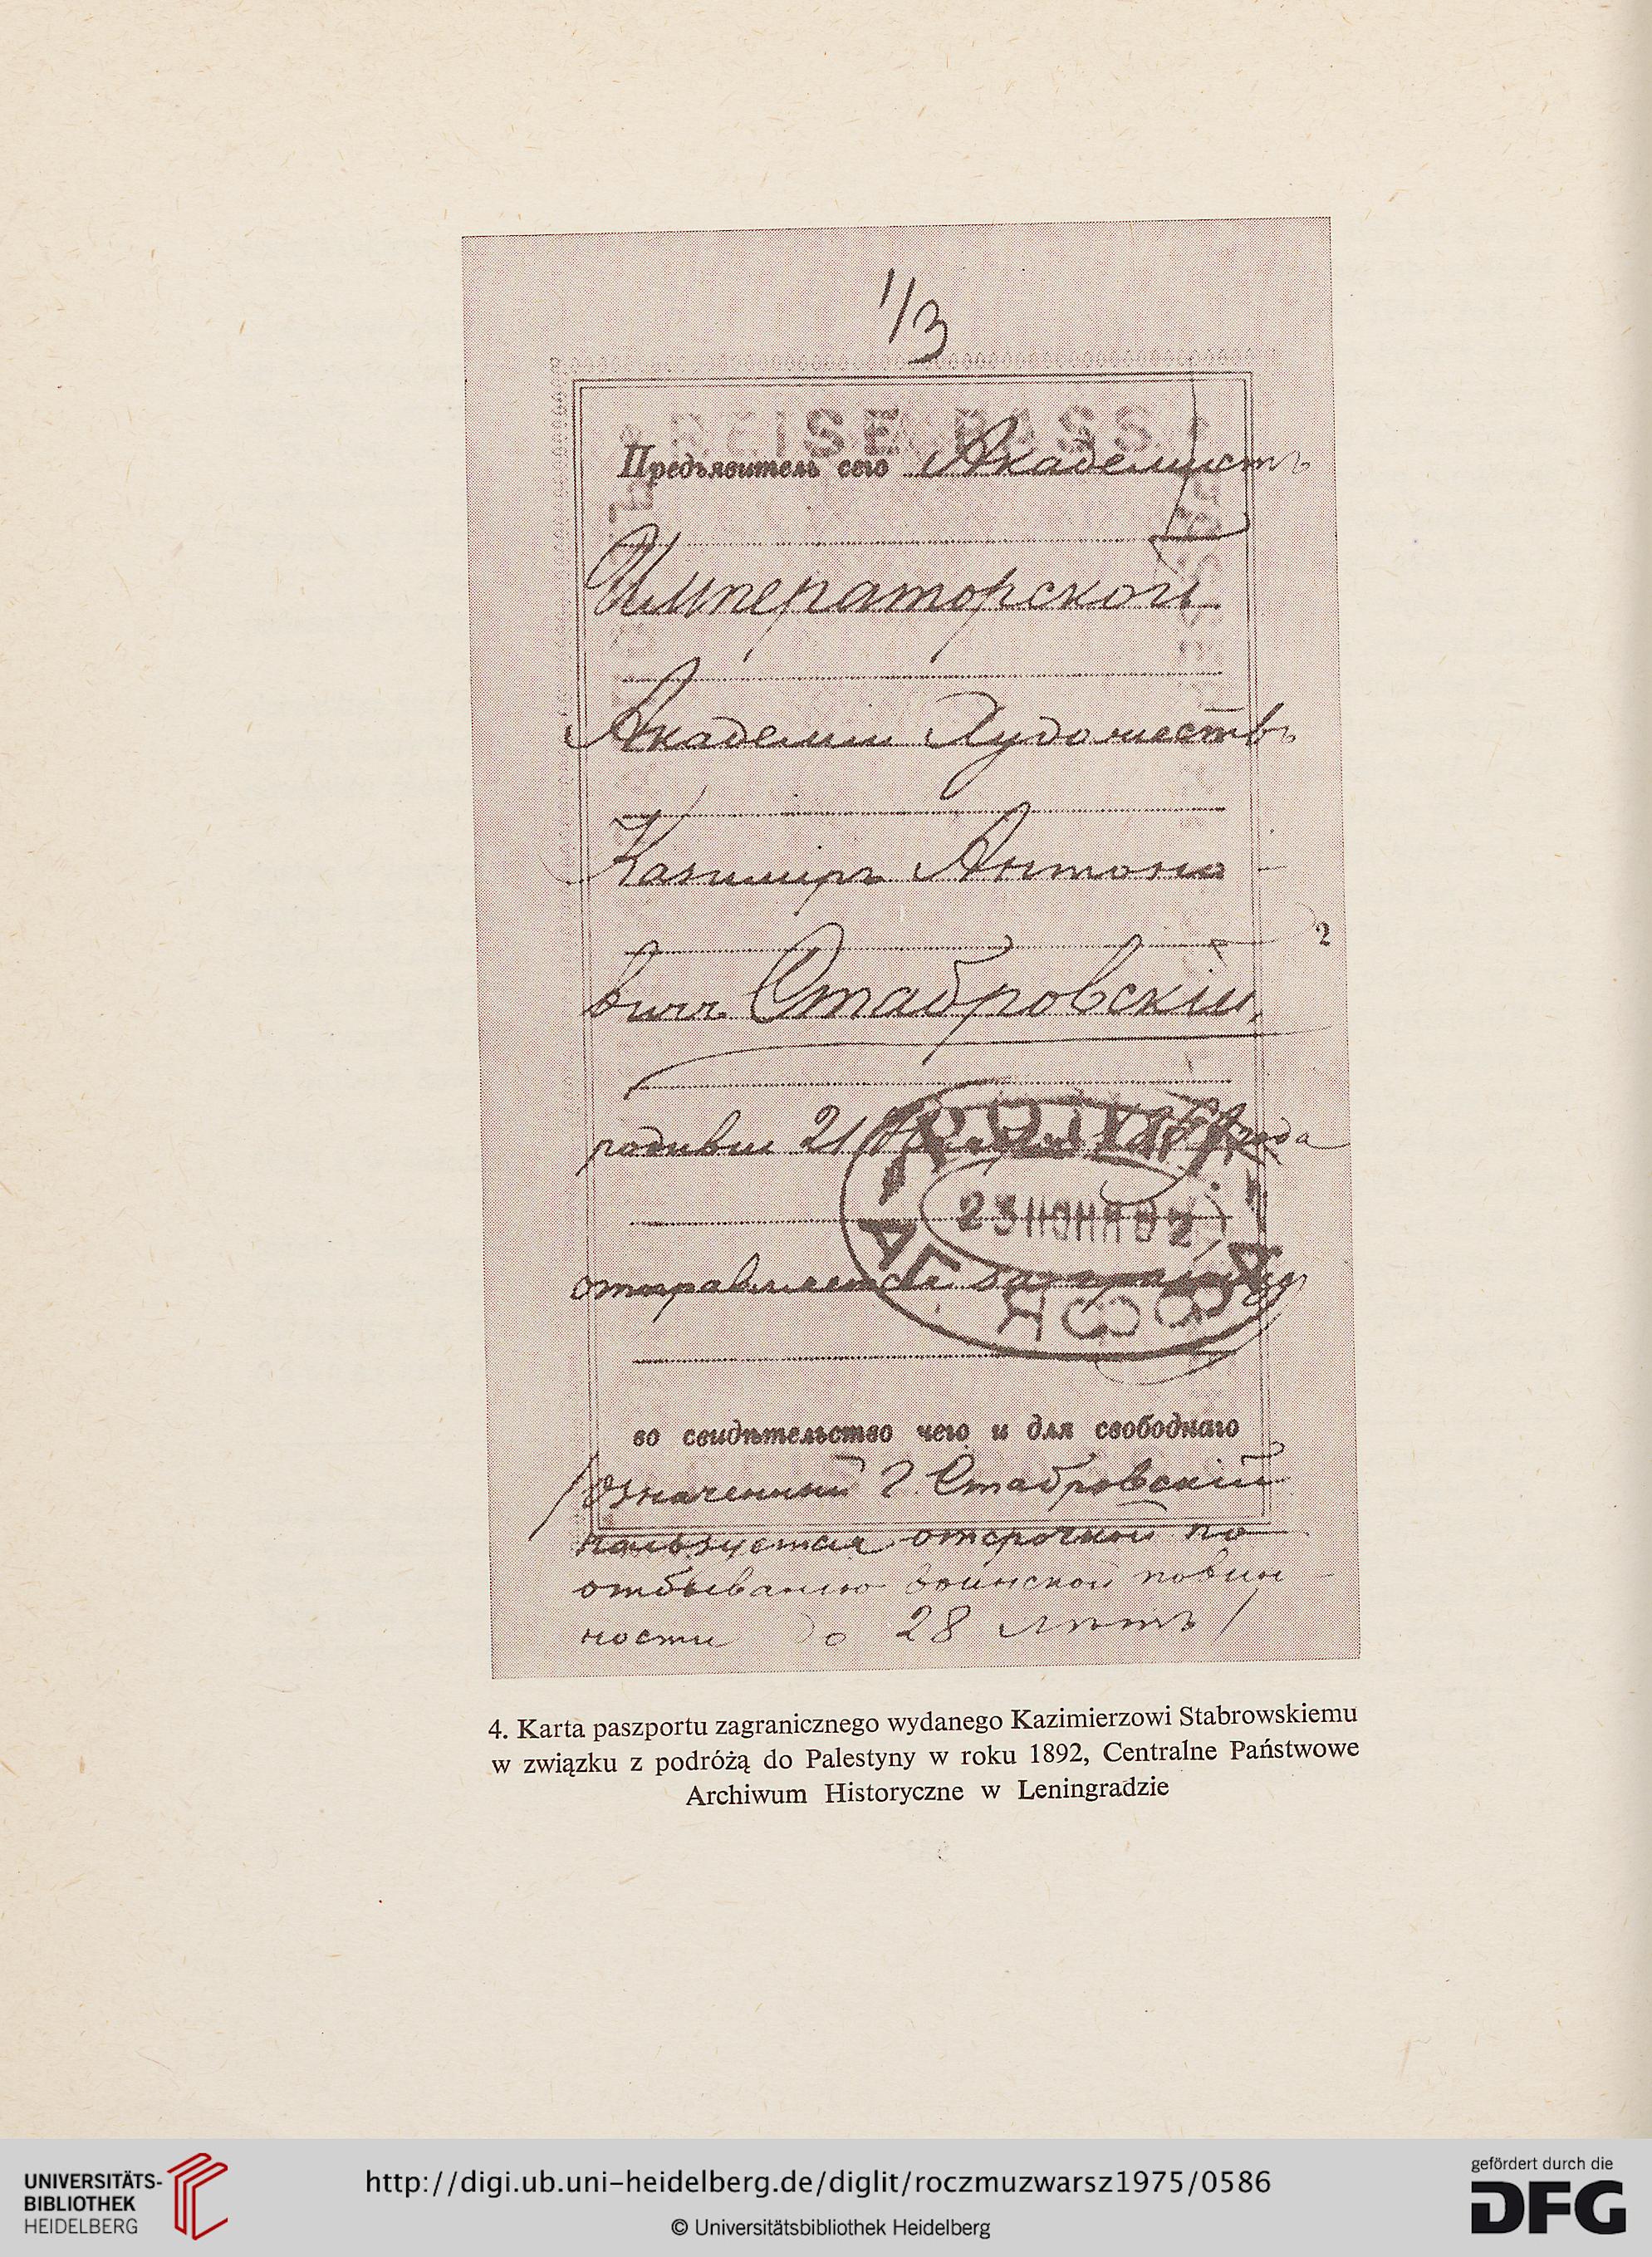 1/3
REISE PASS
Предъявитель сего Академистъ
Императорской
Академіи Художествъ
Казиміръ Антоно-
вичъ Стабровскій,
родивш 21 года
отправляется за границу
во свидѣтельство чего и для свободнаго
/Означенный Г. Стабровскій
пользуется отсрочкой по
отбыванію воинской повин-
ности до 28 лѣтъ/
4. Karta paszportu zagranicznego wydanego Kazimierzowi Stabrowskiemu
w związku z podróżą do Palestyny w roku 1892, Centralne Państwowe
Archiwum Historyczne w Leningradzie
UNIVERSITÄTS-
BIBLIOTHEK
HEIDELBERG
http://digi.ub.uni-heidelberg.de/diglit/roczmuzwarsz1975/0586
© Universitätsbibliothek Heidelberg
gefördert durch die
DFG